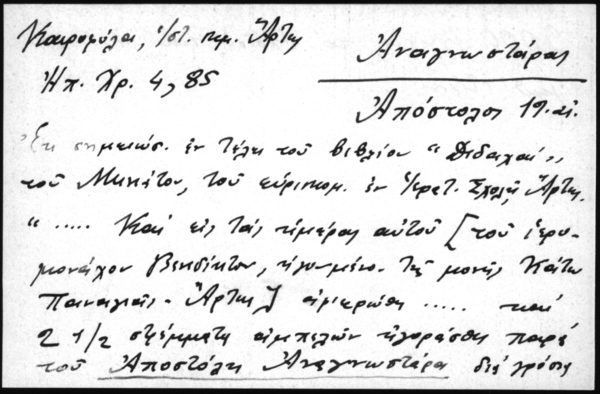 Ἀναγνωστάρας
Ἠπ. Χρ. 4, 85
Ἀπόστολος 19. αἰ.
Ἐκ σημειώσ. ἐν τέλει τοῦ βιβλίου "Διδαχαί",
τοῦ Μηνιάτου, τοῦ εὑρισκομ. ἐν Ἱερατ. Σχολῇ Ἄρτης.
"..... Καί εἰς τάς ἡμέρας αὐτοῦ [τοῦ ἱερο-
μονάχου Βενδίκτου, ἡγουμένου τῆς μονῆς Κάτω
Παναγιᾶς - Ἄρτης] ἀφιερώθη ..... καί
2 1/2 στρέμματα ἀμπελῶν ἠγοράσθη παρά
τοῦ Ἀποστόλη Ἀναγνωστάρα διά γρόσια